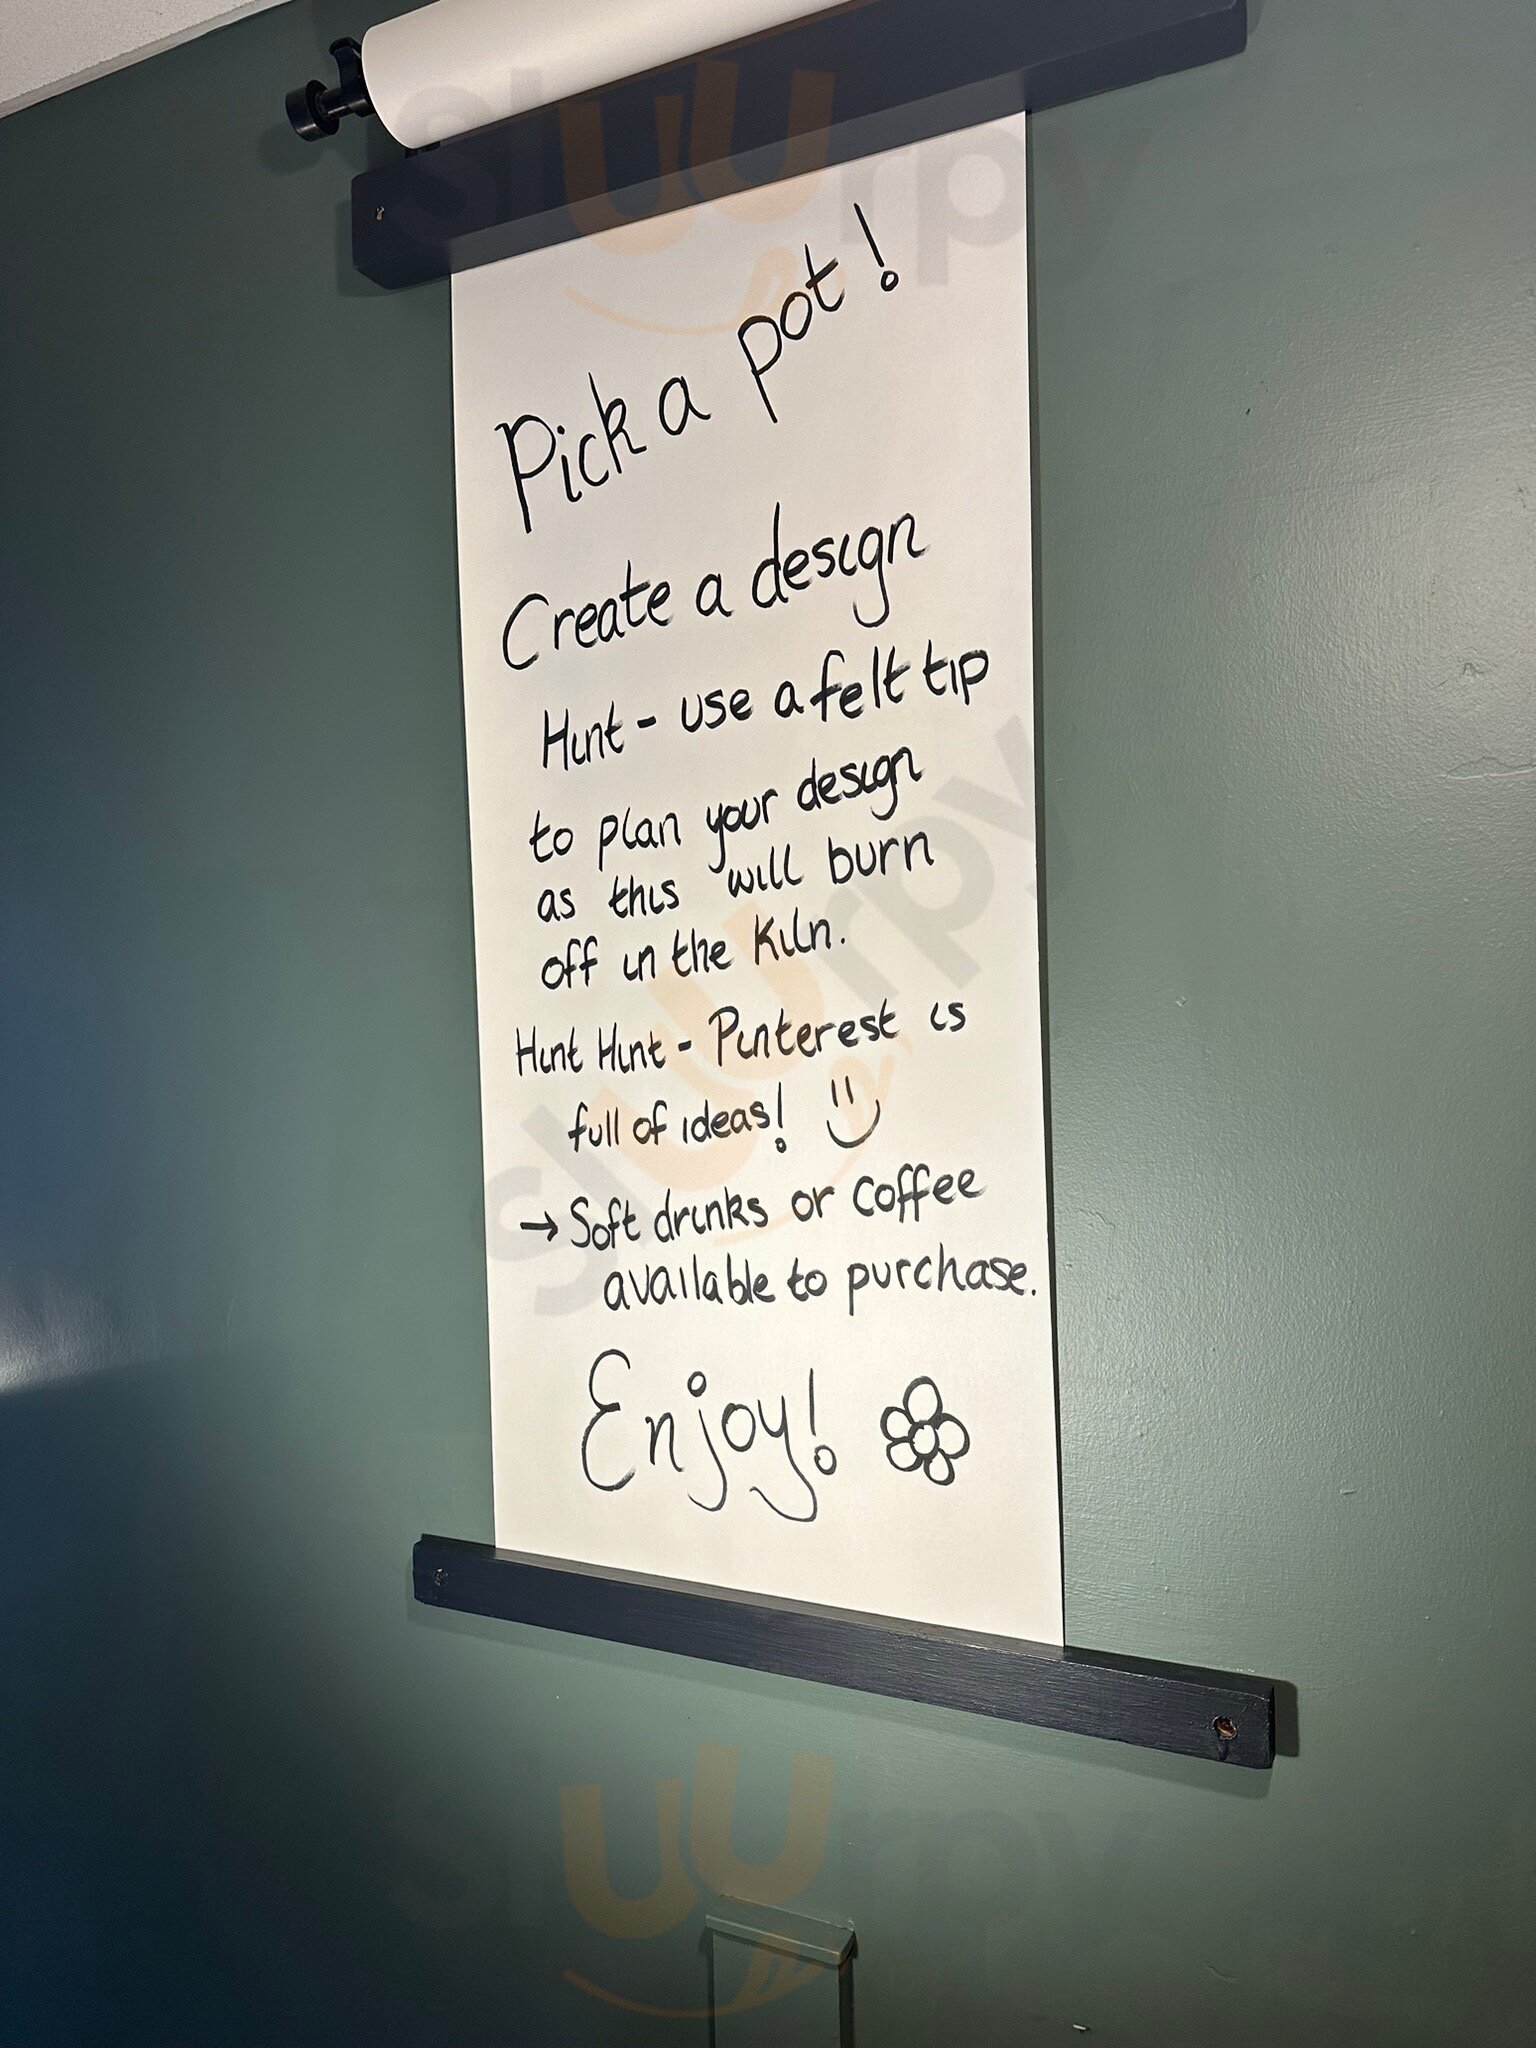 Pick a pot!
Create a design
Hint - use a felt tip
to plan your design
as this will burn
off in the kiln.
Hint Hint - Pinterest is
full of ideas!
→ Soft drinks or coffee
available to purchase.
Enjoy!
sluurpy
sluurpy
sluurpy